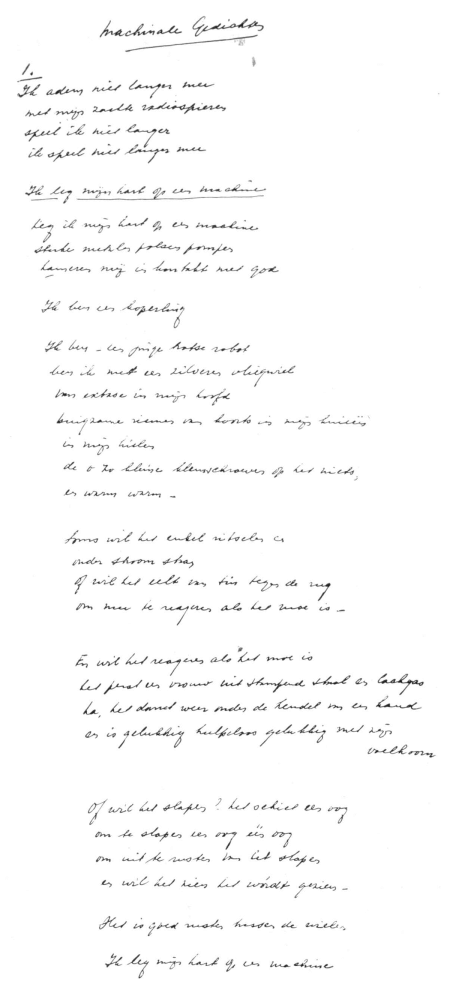 Machinale Gedichten
1.
Ik adem niet langer mee
met mijn zachte radiospieren
speel ik niet langer
ik speel niet langer mee
Ik leg mijn hart op een machine
leg ik mijn hart op een machine
sterke metalen polsen pompen
hameren mij in kontakt met god
Ik ben een koperling
Ik ben - een jonge trotse robot
ben ik met een zilveren vliegwiel
van extase in mijn hoofd
buigzame riemen van koorts in mijn knieën
in mijn hielen
de o zo kleine klauwschroeven op het niets,
en warm warm -
soms wil het enkel ritselen en
onder stroom staan
of wil het eelt van tin tegen de rug
om mee te reageren als het moe is -
En wil het reageren als het moe is
het perst een vrouw uit stampend staal en lachgas
ha, het danst weer onder de hendel van een hand
en is gelukkig hulpeloos gelukkig met zijn
voelhoorn
Of wil het slapen? het schiet een oog
om te slapen een oog één oog
om uit te rusten van het slapen
en wil het zien het wordt gezien -
Het is goed rusten tussen de wielen
Ik leg mijn hart op een machine